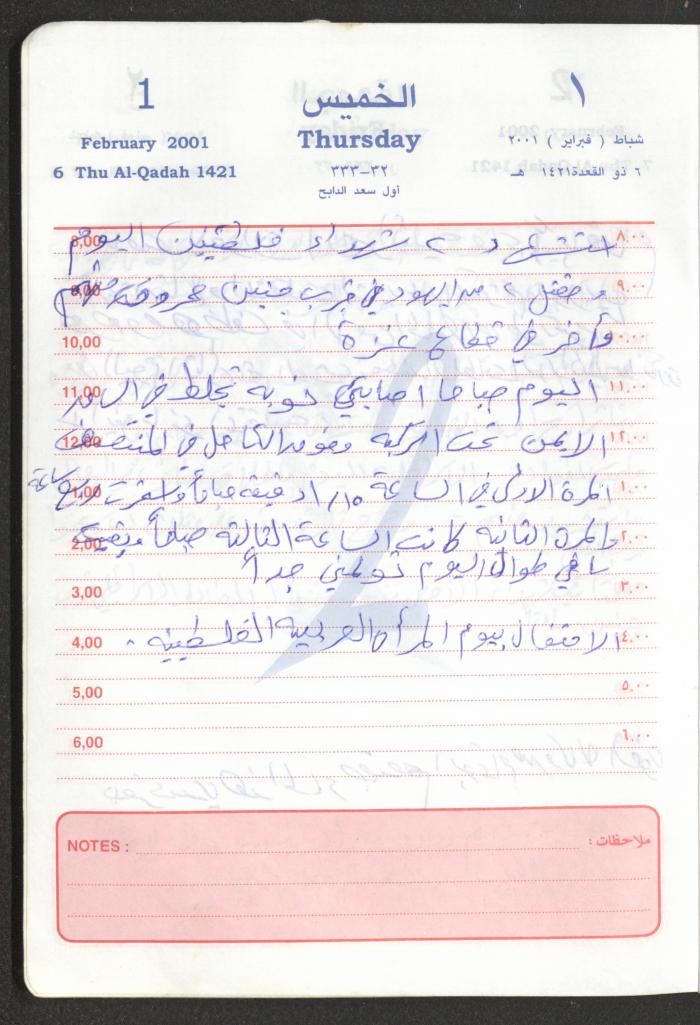 1 الخميس ١
February 2001 Thursday شباط ( فبراير ) ٢٠٠١
6 Thu Al-Qadah 1421 ٣٢-٣٣٣ ٦ ذو القعدة ١٤٢١ هـ
أول سعد الذابح
8,00 استشهد ٢ شهداء فلسطينين اليوم ٨.٠٠
9,00 و مقتل ٢ من اليهود في قرب جنين ٩.٠٠
10,00 وأخر في قطاع غزة ١٠.٠٠
11,00 اليوم صباحا اصابتني نوبه تجلط في الساق ١١.٠٠
12,00 الايمن تحت الركبه وفوق الكاحل في المنتصف ١٢.٠٠
1,00 المرة الاولى في الساعة ١/١٥ دقيقه صباحاً واستمرت ربع ساعة ١.٠٠
2,00 والمرة الثانيه كانت الساعة الثالثة صباحاً وبقيت ٢.٠٠
ساقي طوال اليوم تولمني جداً
3,00 ٣.٠٠
4,00 الاحتفال بيوم المرأة العربيه الفلسطينيه . ٤.٠٠
5,00 ٥.٠٠
6,00 ٦.٠٠
NOTES : ملاحظات :